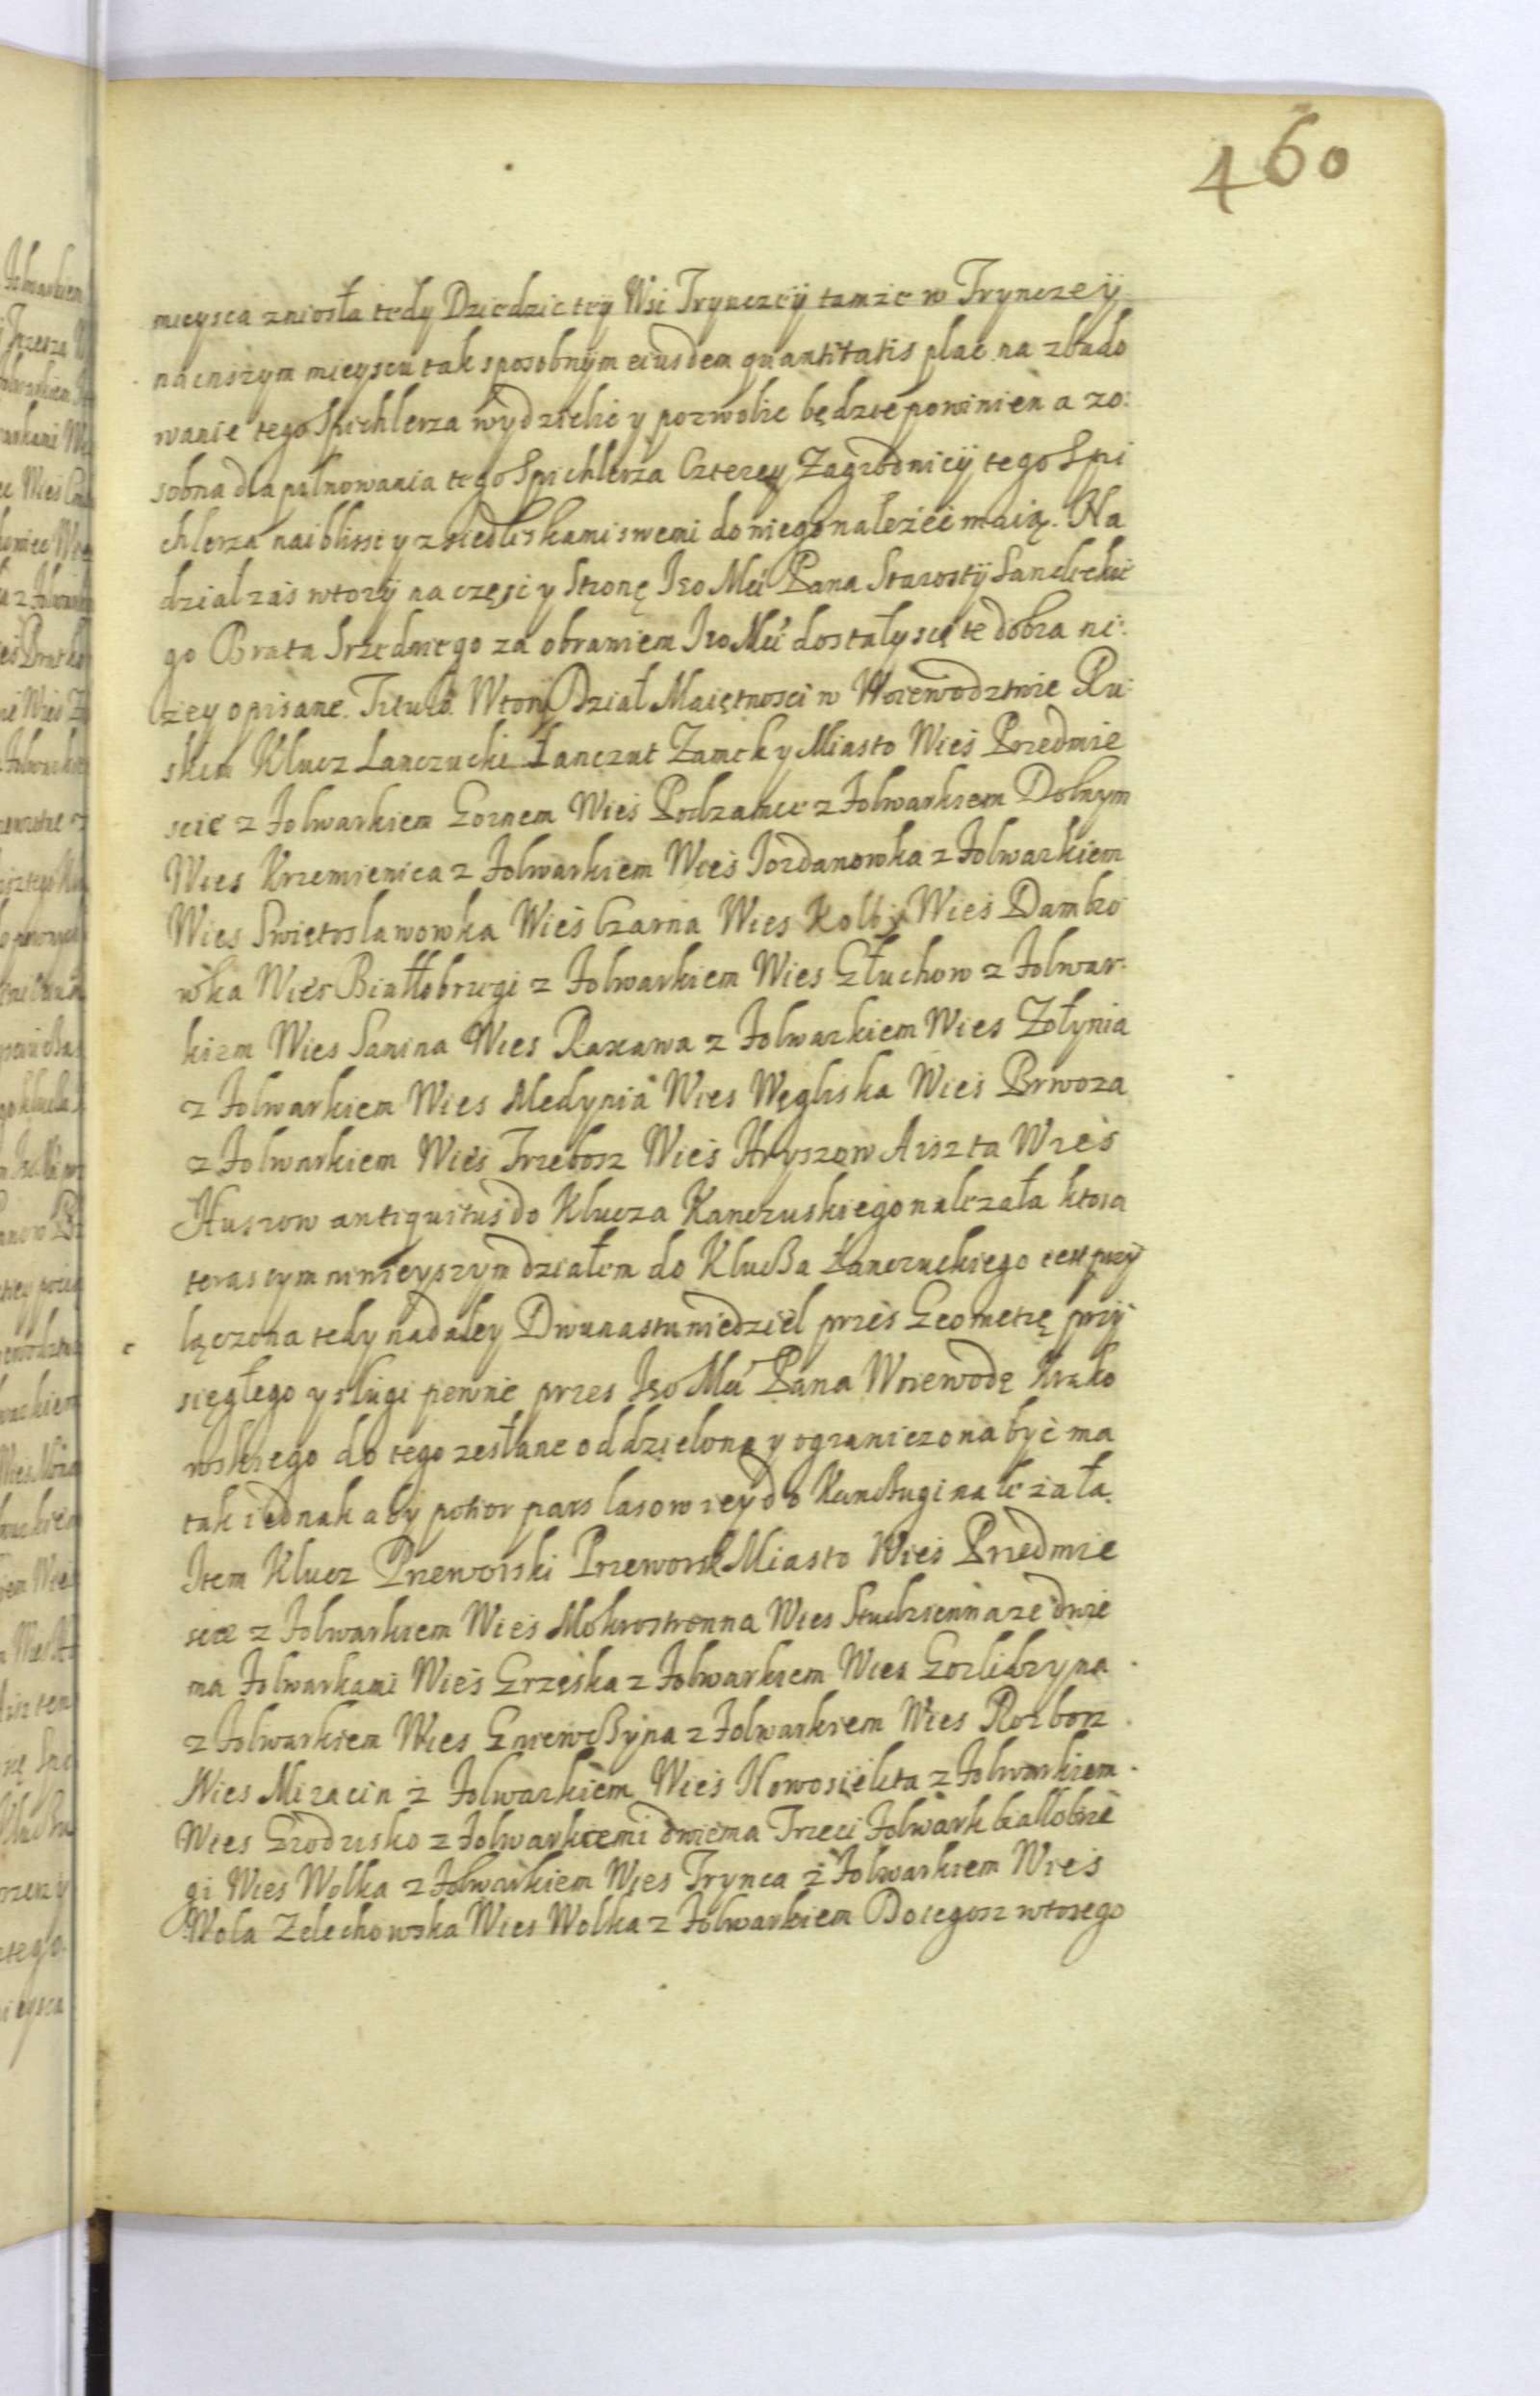 460
mieysca zniosła tedy Dziedzic tey Wsi Trynczey tamze w Trynczey
na inszym mieyscu tak sposobnym eiusdem quantitatis plac na zbudo
wanie tego Spichlerza wydzielic y pozwolic będzie powinien a zo:
sobna dla pilnowania tego Spichlerza Czterey Zagrodnicy tego Spi
chlerza naiblissi y z siedliskami swemi do niego należeć maią. Na
dział zaś wtory na częsc y Stronę Jeo Mći Pana Starosty Sandeckie
go Brata Srzedniego za obraniem Jeo Mći dostały się te dobra ni:
zey opisane. Titulo. Wtory Dział Maiętnosci w Woiewodztwie Ru:
skim Klucz Lanczucki Łanczut Zamek y Miasto Wieś Przedmie
scie z folwarkiem Gornem Wieś Podzamcze z folwarkiem Dolnym
Wies Krzemienica z folwarkiem Wieś Jordanowka z folwarkiem
Wies Swiętoslawowka Wieś Czarna Wies Kolby Wieś Dambro
wka Wieś Białłobrzegi z folwarkiem Wies Głuchow z folwar:
kiem Wies Sanina Wies Raxawa z folwarkiem Wies Zołynia
z folwarkiem Wies Medynia Wies Węgliska Wieś Brwoza
z folwarkiem Wieś Trzebosz Wieś Hryszow Aiszta Wieś
Huszow antiquitus do Klucza Kanczuskiego należała ktora
teras tym ninieyszym działem do Klucza Łanczuckiego iest przy
lączona tedy nadaley Dwunastu niedziel przes Geometrę przy
sięgłego y sługi pewne przes Jeo Mći Pana Woiewodę Krako
wskiego do tego zesłane oddzielona y ograniczona być ma
tak iednak aby potior pars lasow iey do Kanczugi należała.
Item Klucz Przeworski Przeworsk Miasto Wieś Przedmie
scie z folwarkiem Wieś Mokrostronna Wies Studzienna ze dwie
ma folwarkami Wieś Grzęska z folwarkiem Wies Gorliczyna
z folwarkiem Wies Gniewczyna z folwarkiem Wies Rozborz
Wies Miracin z folwarkiem Wieś Nowosielca z folwarkiem
Wies Grodzisko z folwarkiemi dwiema Trzeci folwark białłobrze
gi Wieś Wolka z folwarkiem Wies Trynca z folwarkiem Wieś
Wola Zelechowska Wies Wolka z folwarkiem Do tegosz wtorego